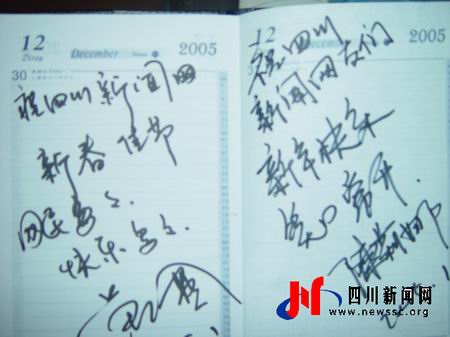 12
December
2005
30
祝四川新闻网
新春佳节
网民多多
快乐多多
12
December
2005
31
祝四川
新闻网友们
新年快乐
笑口常开
四川新闻网
www.newssc.org